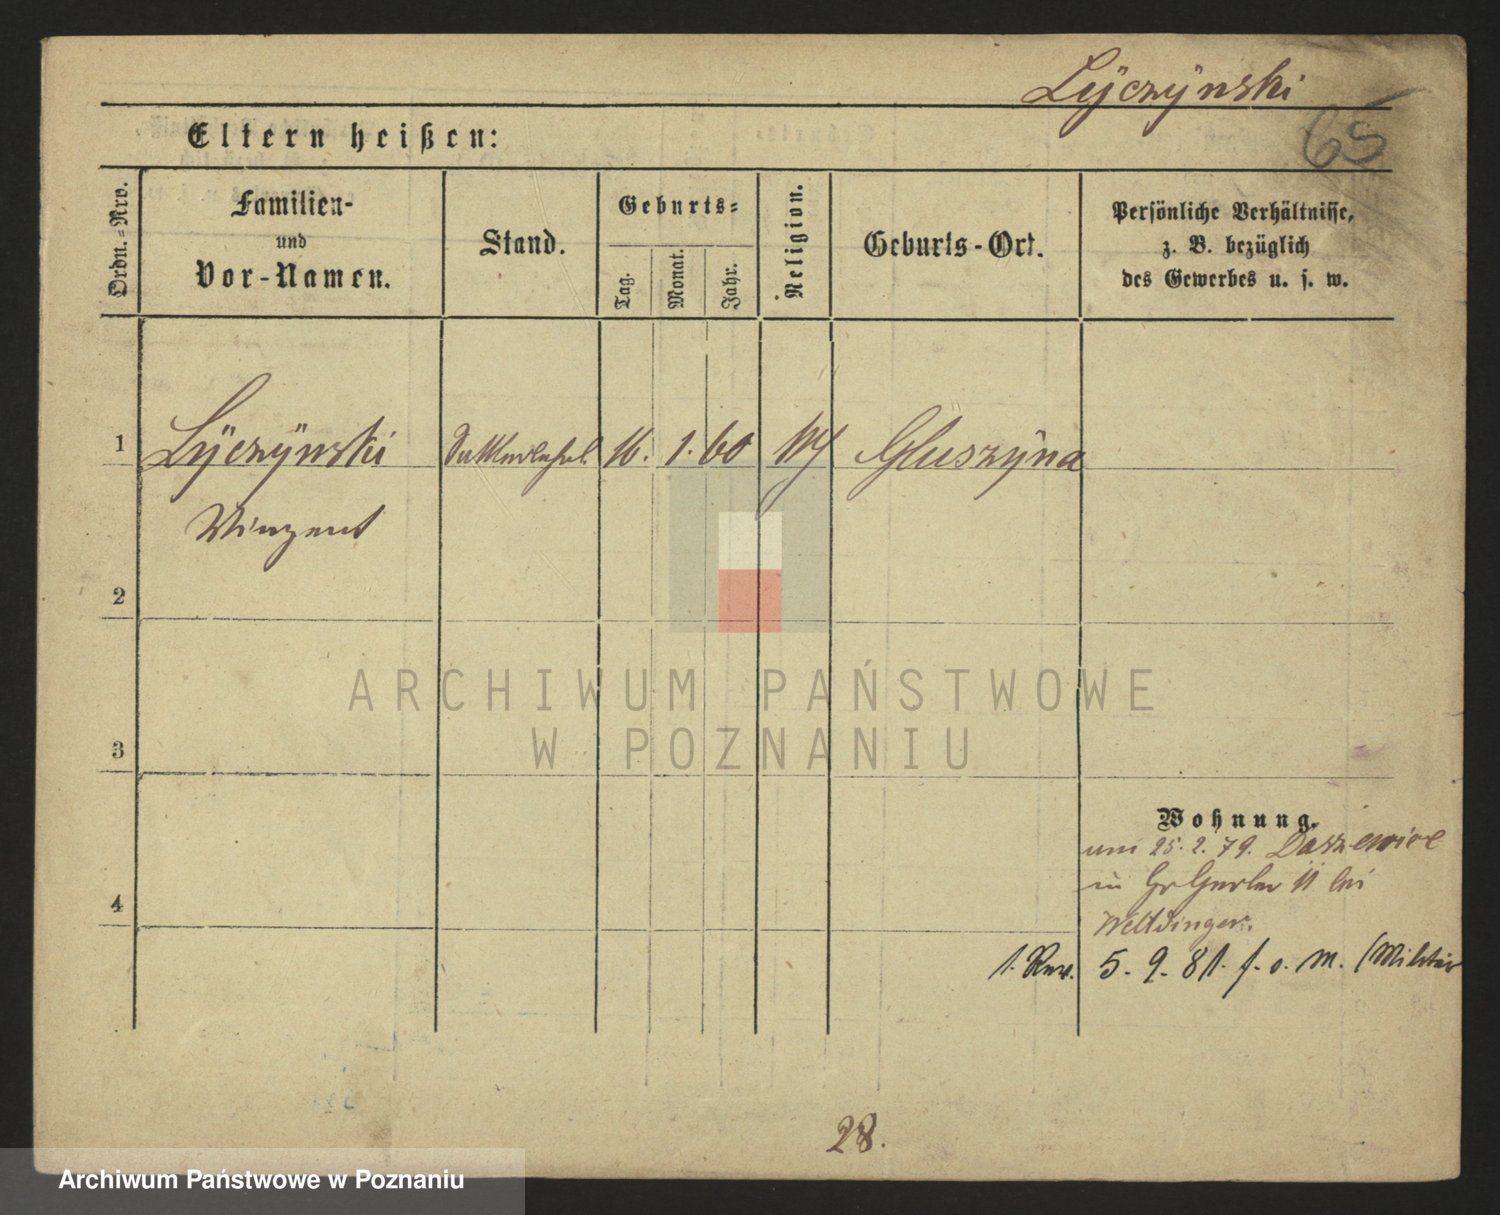 Lÿczÿnski
65
Eltern heißen:
Ordn.-Nro.
Familien-
und
Vor-Namen.
Stand.
Geburts-
Tag.
Monat.
Jahr.
Religion.
Geburts-Ort.
Persönliche Verhältnisse,
z. B. bezüglich
des Gewerbes u. s. w.
1 Lÿczÿnski 16. 1. 60 Gluszÿna
Vinzent
2
3
4
ARCHIWUM PAŃSTWOWE
W POZNANIU
Wohnung.
25. 2. 79.
in 11 bei
1. Nov. 5. 9. 81. f. o. M. (Militär
28.
Archiwum Państwowe w Poznaniu